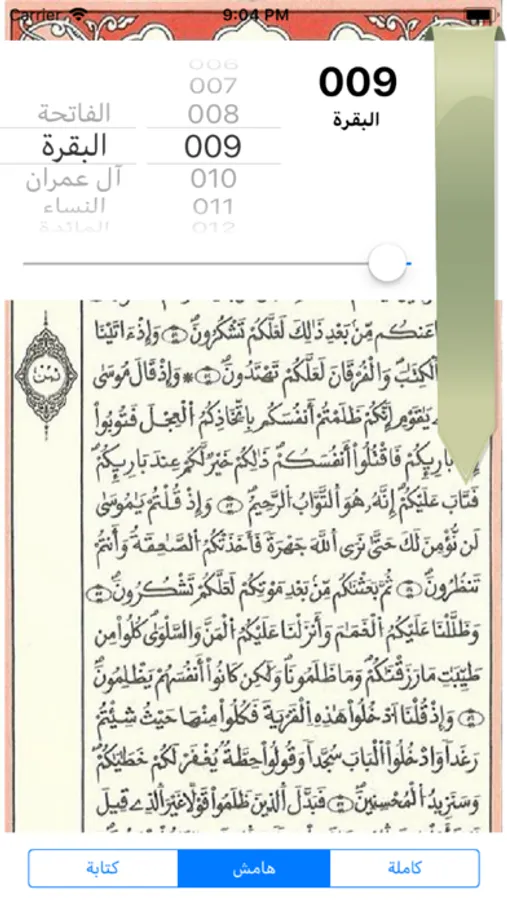 Carrier 9:04 PM
009
البقرة
الفاتحة
البقرة
آل عمران
النساء
المائدة
006
007
008
009
010
011
012
عَنكُم مِّنۢ بَعْدِ ذَٰلِكَ لَعَلَّكُمْ تَشْكُرُونَ وَإِذْ ءَاتَيْنَا
ثمن
اَلْكِتَٰبَ وَالْفُرْقَانَ لَعَلَّكُمْ تَهْتَدُونَ * وَإِذْ قَالَ مُوسَىٰ
يَٰقَوْمِ إِنَّكُمْ ظَلَمْتُمْ أَنفُسَكُم بِاتِّخَاذِكُمُ اُلْعِجْلَ فَتُوبُوٓاْ
بَارِئِكُمْ فَاقْتُلُوٓاْ أَنفُسَكُمْ ذَٰلِكُمْ خَيْرٌ لَّكُمْ عِندَ بَارِئِكُمْ
فَتَابَ عَلَيْكُمْ إِنَّهُۥ هُوَ اَلتَّوَّابُ اُلرَّحِيمُ وَإِذْ قُلْتُمْ يَٰمُوسَىٰ
لَن نُّؤْمِنَ لَكَ حَتَّىٰ نَرَى اَللَّهَ جَهْرَةً فَأَخَذَتْكُمُ اُلصَّٰعِقَةُ وَأَنتُمْ
تَنظُرُونَ ثُمَّ بَعَثْنَٰكُم مِّنۢ بَعْدِ مَوْتِكُمْ لَعَلَّكُمْ تَشْكُرُونَ
وَظَلَّلْنَا عَلَيْكُمُ اُلْغَمَٰمَ وَأَنزَلْنَا عَلَيْكُمُ اُلْمَنَّ وَالسَّلْوَىٰ كُلُواْ مِن
طَيِّبَٰتِ مَا رَزَقْنَٰكُمْ وَمَا ظَلَمُونَا وَلَٰكِن كَانُوٓاْ أَنفُسَهُمْ يَظْلِمُونَ
وَإِذْ قُلْنَا اَدْخُلُواْ هَٰذِهِ اِلْقَرْيَةَ فَكُلُواْ مِنْهَا حَيْثُ شِئْتُمْ
رَغَداً وَادْخُلُواْ اُلْبَابَ سُجَّداً وَقُولُواْ حِطَّةٌ يُغْفَرْ لَكُمْ خَطَٰيَٰكُمْ
وَسَنَزِيدُ اُلْمُحْسِنِينَ فَبَدَّلَ اَلذِينَ ظَلَمُواْ قَوْلًا غَيْرَ اَلذِے قِيلَ
كاملة
هامش
كتابة